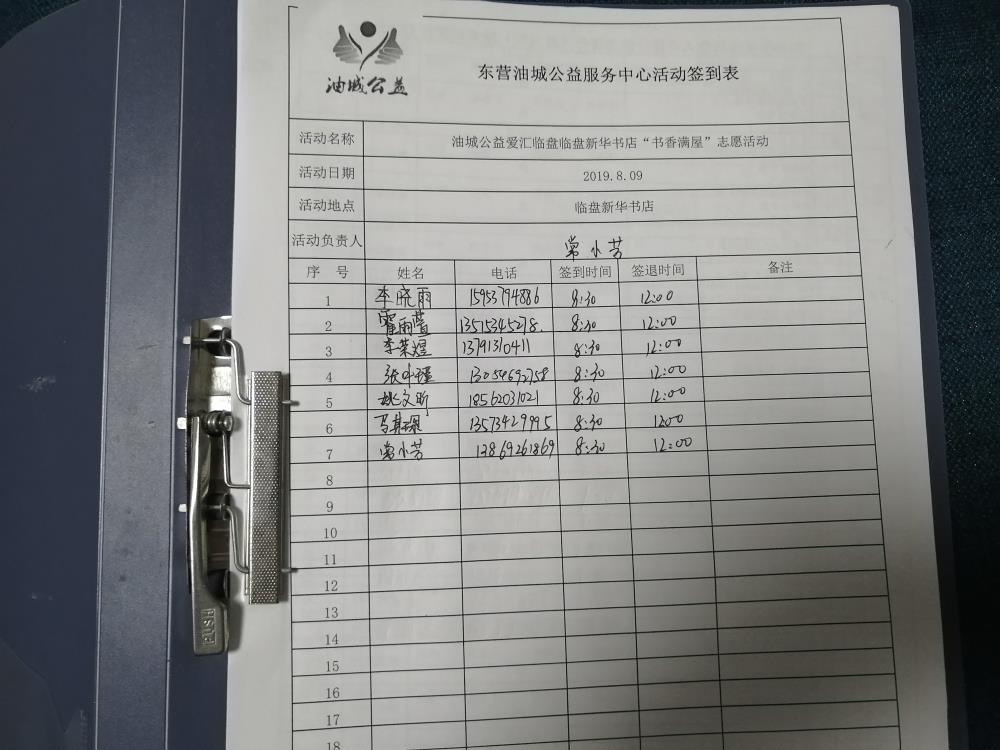 油城公益
东营油城公益服务中心活动签到表
活动名称 油城公益爱汇临盘临盘新华书店“书香满屋”志愿活动
活动日期 2019.8.09
活动地点 临盘新华书店
活动负责人 常小芳
序 号 姓名 电话 签到时间 签退时间 备注
1 李晓雨 15953794886 8:30 12:00
2 霍雨萱 13515345278. 8:30 12:00
3 李荣煜 13791310411 8:30 12:00
4 13054692758 8:30 12:00
5 姚文昕 18562031021 8:30 12:00
6 13573429995 8:30 1200
7 常小芳 13869261869 8:30 12:00
8
9
10
11
12
13
14
15
16
17
18
PUSH